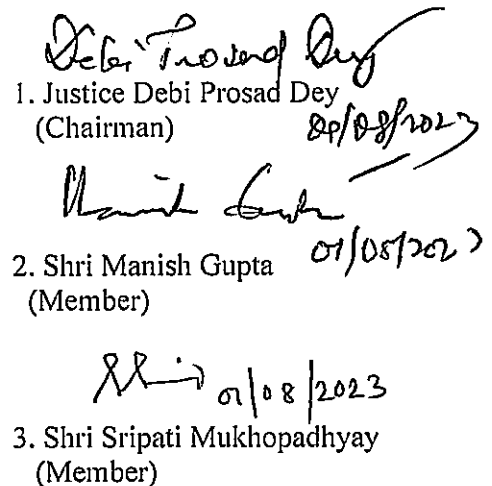 Debi Prosad Dey
1. Justice Debi Prosad Dey
(Chairman)
01/08/2023
2. Shri Manish Gupta
01/08/2023
(Member)
01/08/2023
3. Shri Sripati Mukhopadhyay
(Member)